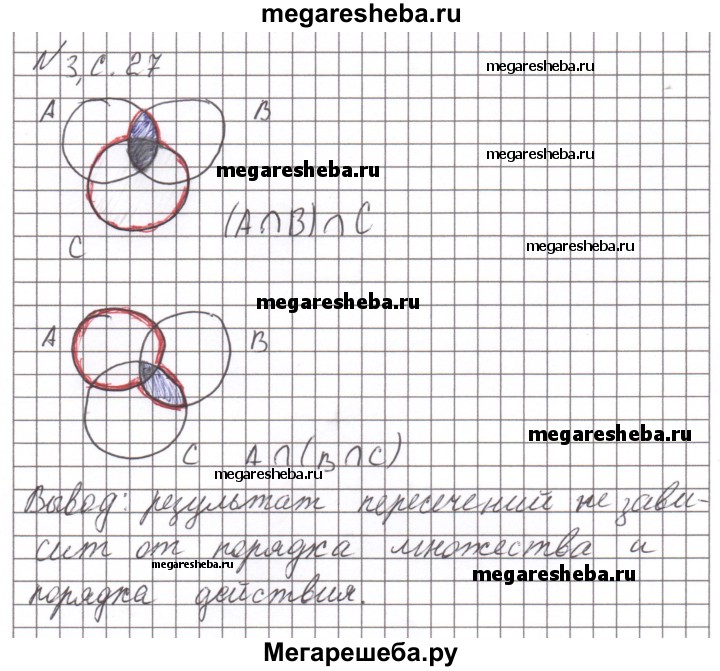 megaresheba.ru
N 3, с. 27
megaresheba.ru
A
B
megaresheba.ru
megaresheba.ru
(A∩B)∩C
C
megaresheba.ru
megaresheba.ru
A
B
megaresheba.ru
C
A∩(B∩C)
megaresheba.ru
Вывод: результат пересечений не зави-
сит от порядка множества и
megaresheba.ru
megaresheba.ru
порядка действия.
Мегарешеба.ру